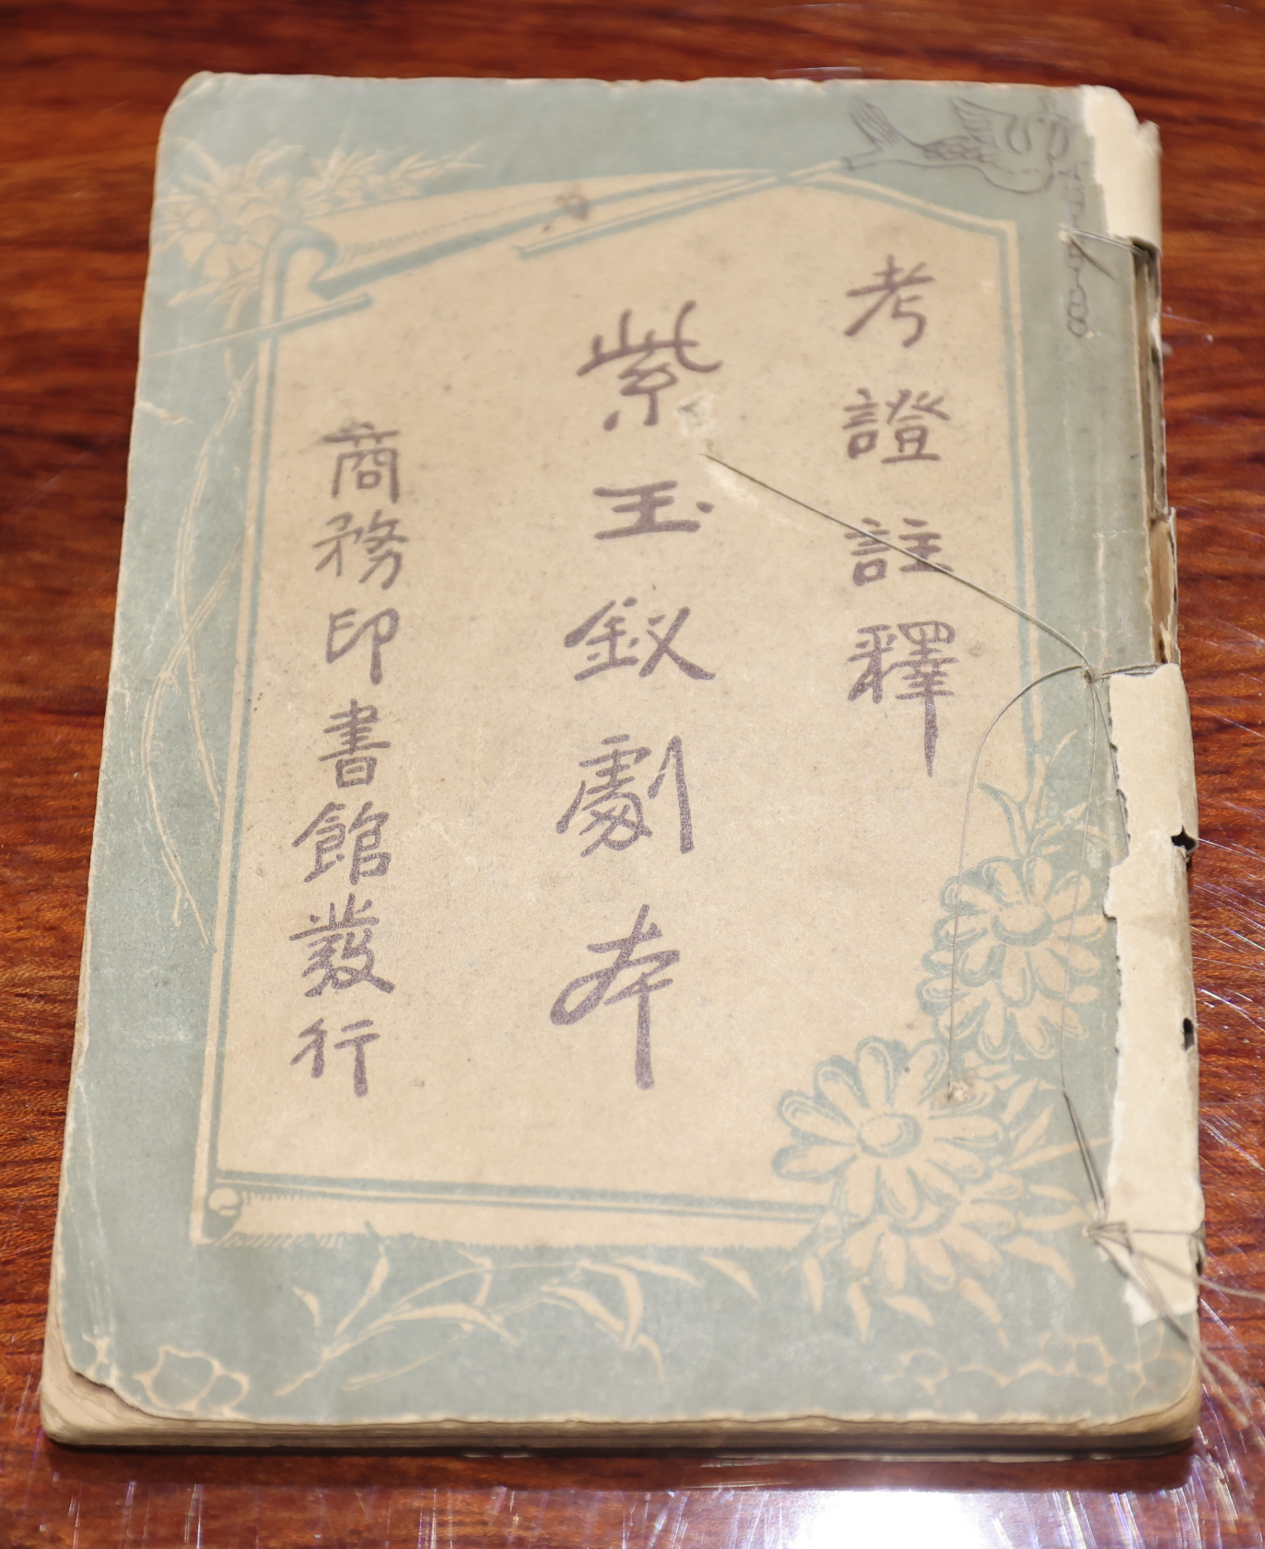 考證註釋
紫玉釵劇本
商務印書館發行